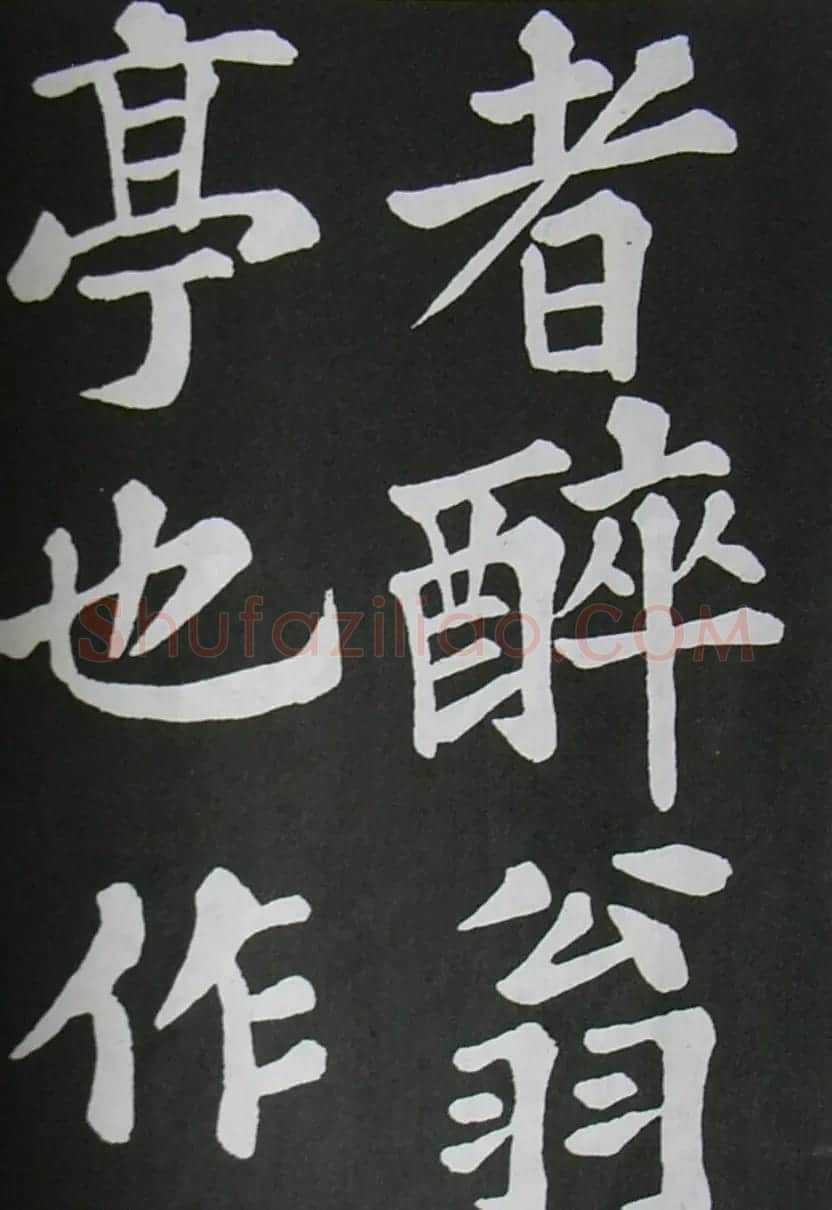 者醉翁
亭也作
Shufaziliao.COM